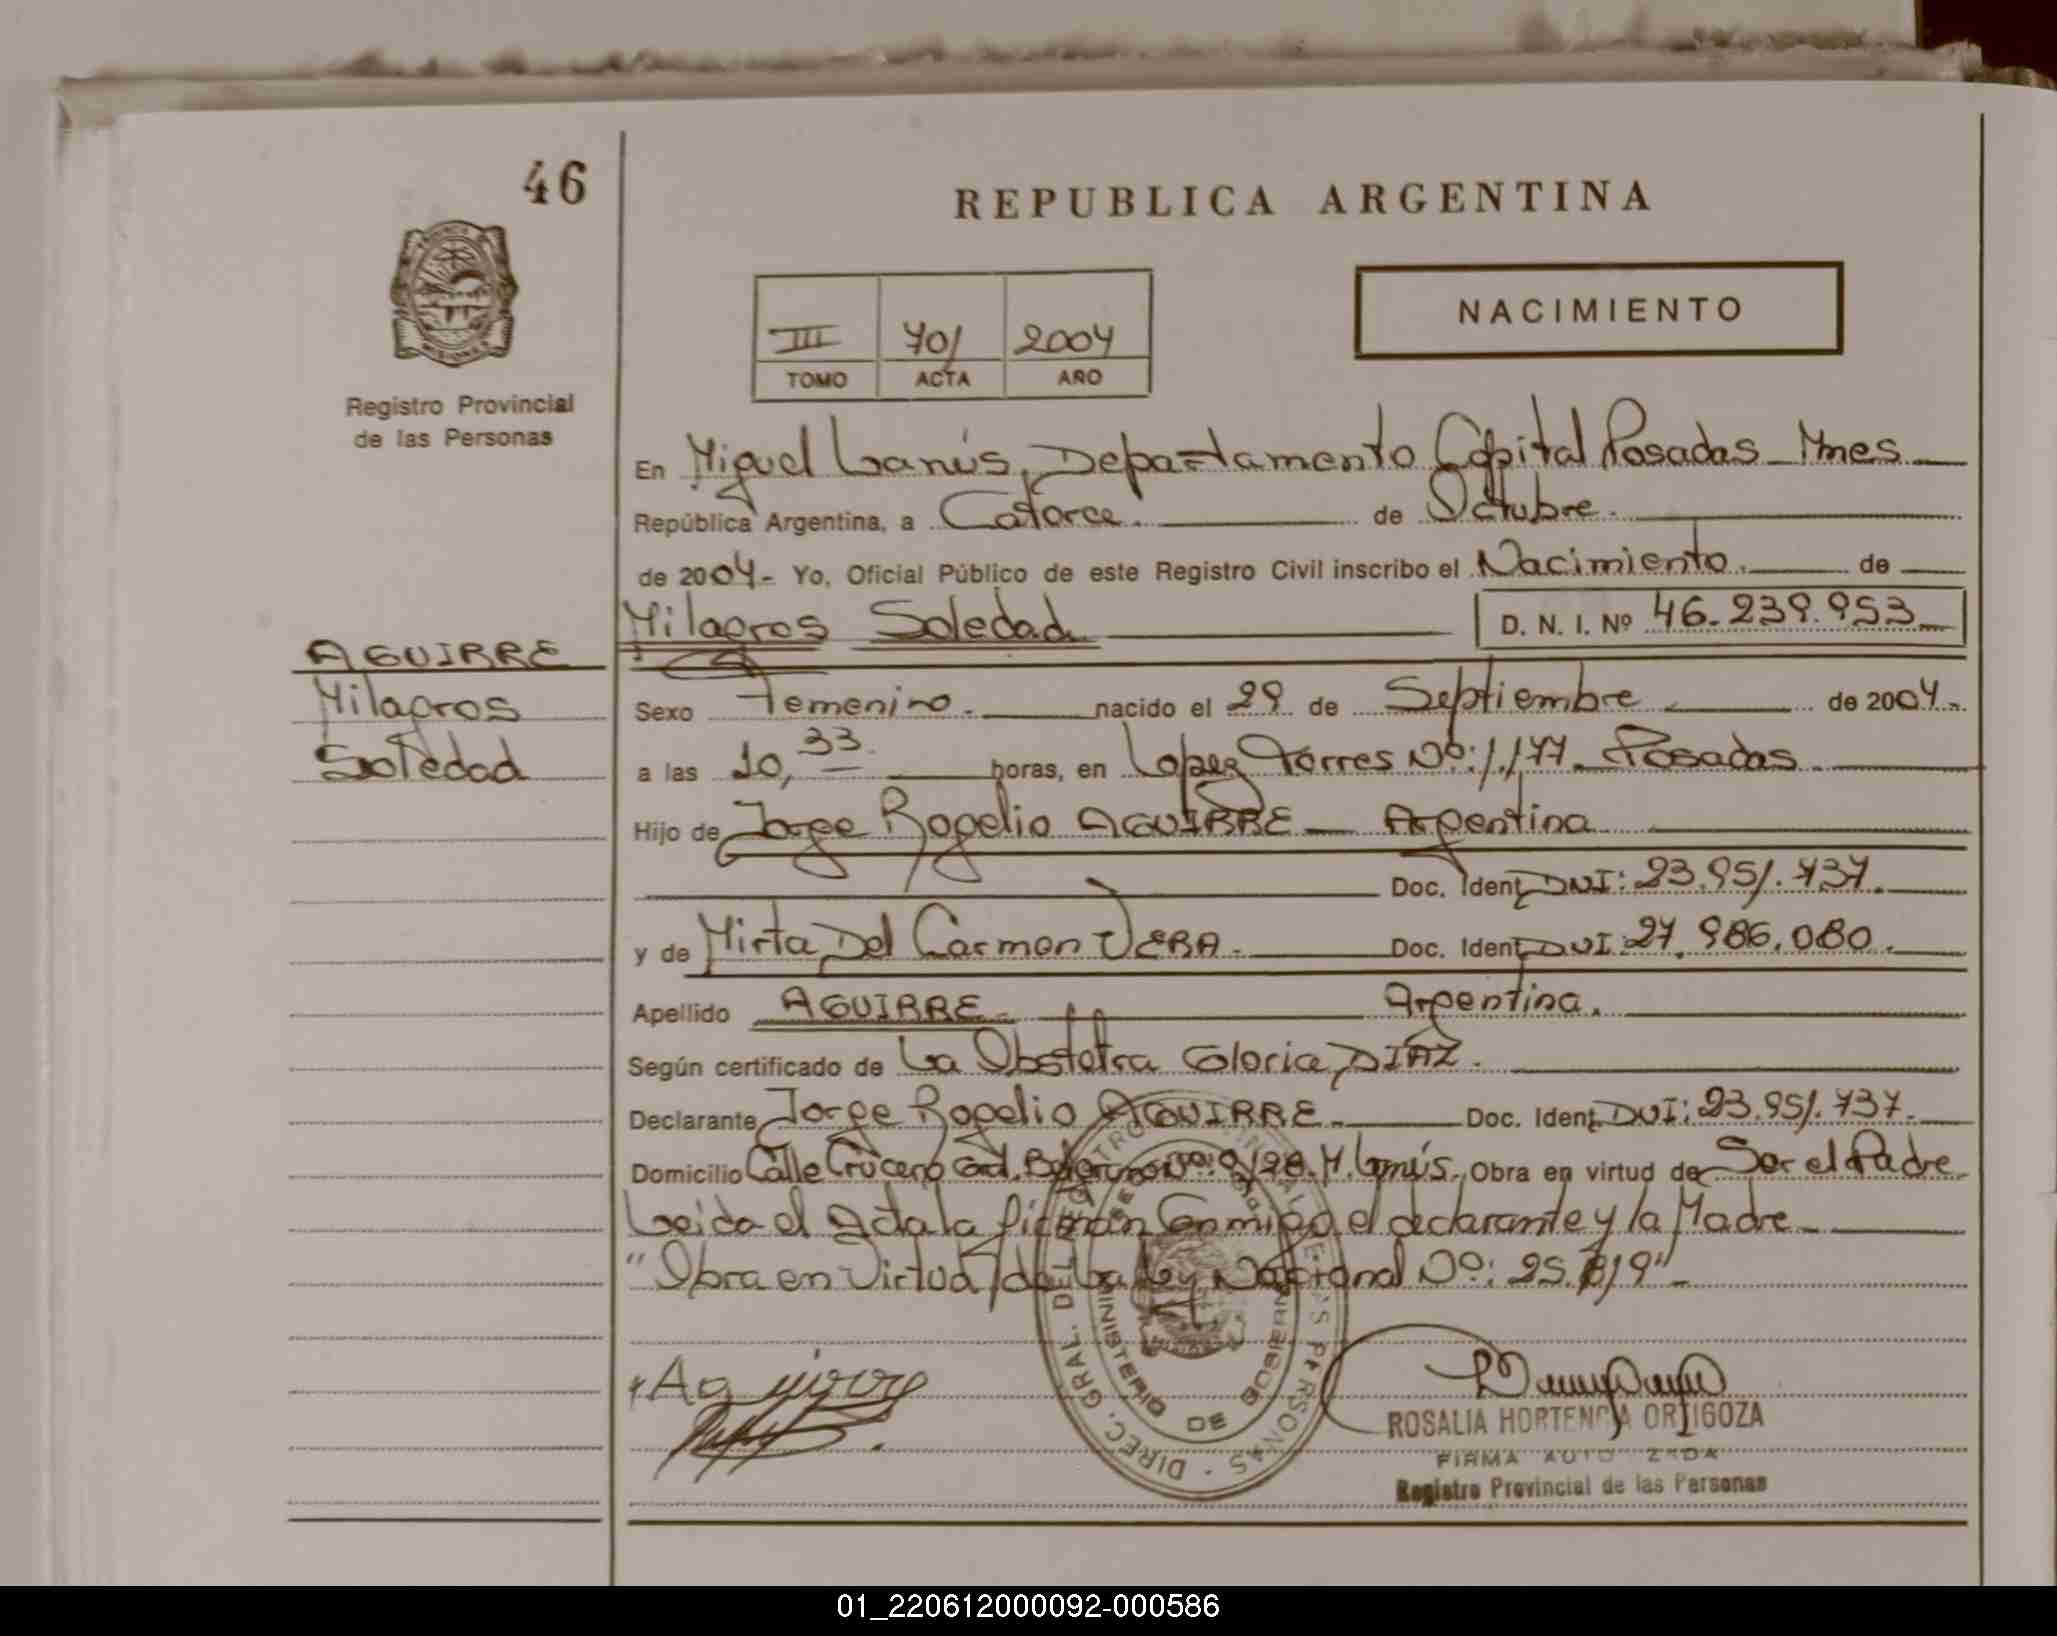 46
REPUBLICA ARGENTINA
NACIMIENTO
III 701 2004
TOMO ACTA AÑO
Registro Provincial
de las Personas
En Miguel Lanús, Departamento Capital Posadas Mnes
República Argentina, a Catorce. de Octubre.
de 2004- Yo, Oficial Público de este Registro Civil inscribo el Nacimiento. de
Milagros Soledad D. N. I. Nº 46.239.953
AGUIRRE
Milagros
Soledad
Sexo Femenino. nacido el 29 de Septiembre de 2004.
a las 10,33 horas, en Lopez Torres Nº: 1.177. Posadas
Hijo de Jorge Rogelio AGUIRRE Argentina
Doc. Ident. DNI: 23.951.737.
y de Mirta Del Carmen VERA. Doc. Ident. DNI: 27.986.080.
Apellido AGUIRRE. Argentina.
Según certificado de La Obstetra Gloria DIAZ.
Declarante Jorge Rogelio AGUIRRE. Doc. Ident. DNI: 23.951.737.
Domicilio Calle Crucero Gral. Belgrano Nº M. Lanús. Obra en virtud de Ser el Padre
Leida el Acta la firman Conmigo el declarante y la Madre
"Obra en Virtud de La Ley Nacional Nº: 25.819"
Aguirre
DIREC. GRAL. DEL REGISTRO PROVINCIAL DE LAS PERSONAS
MINISTERIO DE GOBIERNO
ROSALIA HORTENCIA ORTIGOZA
FIRMA AUTORIZADA
Registro Provincial de las Personas
01_220612000092-000586